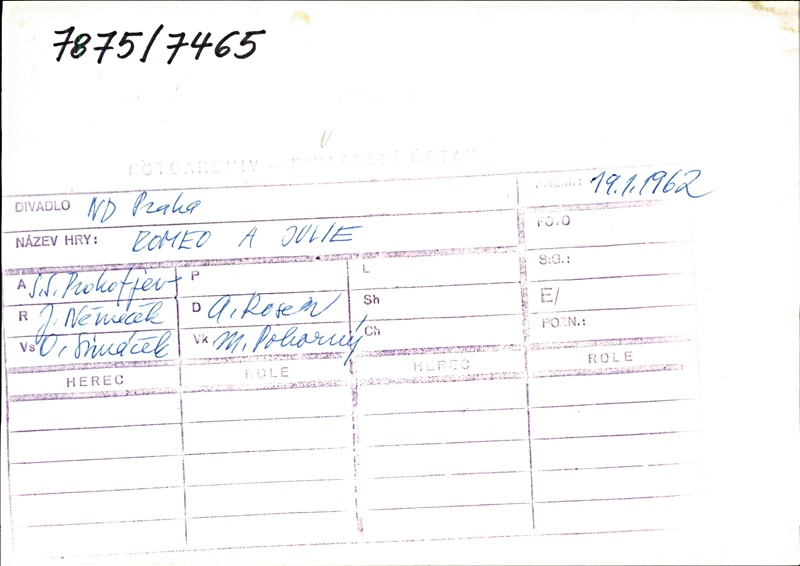 7875/7465
FOTOARCHIV – DIVADELNÍ ÚSTAV
DIVADLO ND Praha PREM.: 19.1.1962
NÁZEV HRY: ROMEO A JULIE FOTO
A S.S. Prokofjev P L SIG.:
R J. Němeček D A. Rosen Sh E/
Vs O. Šimáček Vk M. Pokorný Ch POZN.:
HEREC ROLE HEREC ROLE